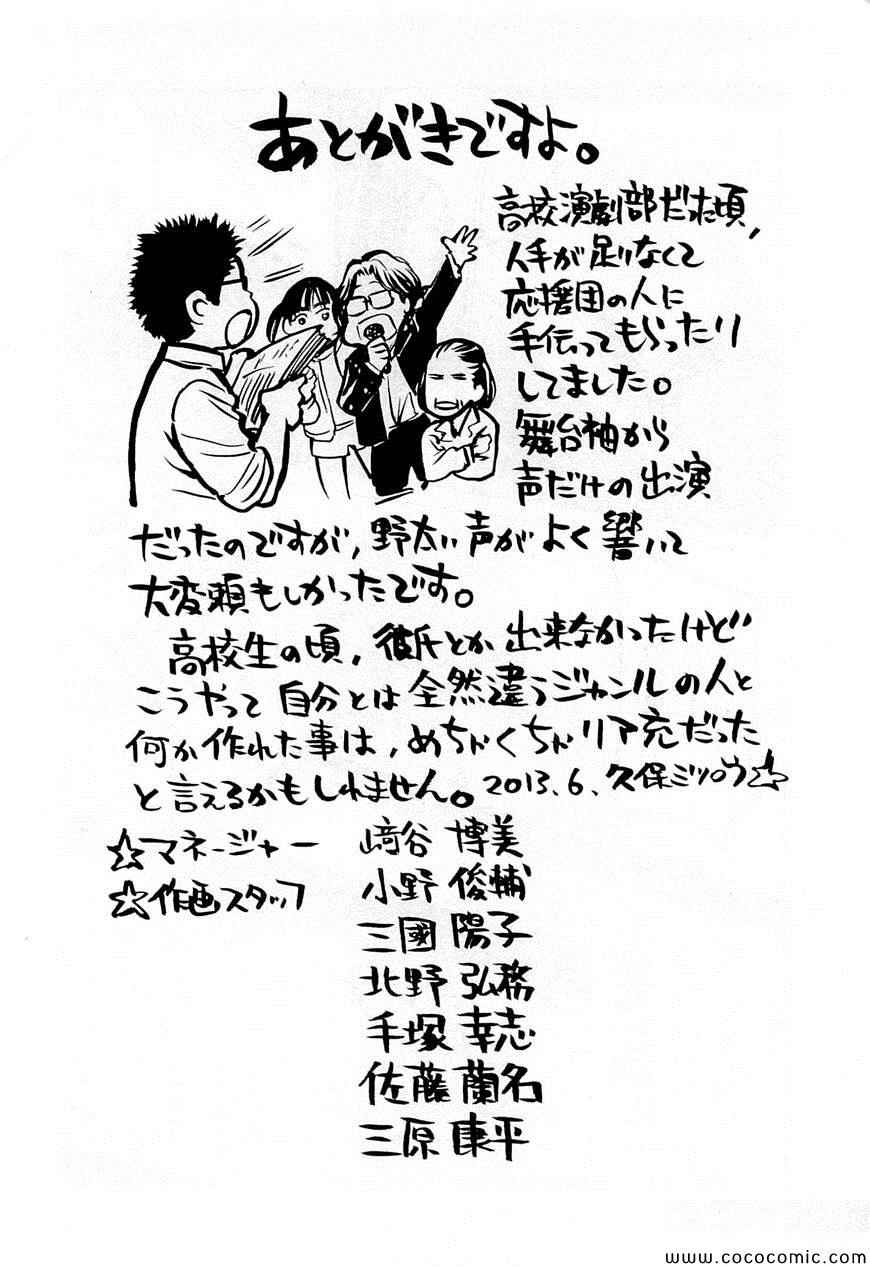 あとがきですよ。
高校演劇部だった頃、
人手が足りなくて
応援団の人に
手伝ってもらったり
してました。
舞台袖から
声だけの出演
だったのですが、野太い声がよく響いて
大変頼もしかったです。
高校生の頃、彼氏とか出来なかったけど
こうやって自分とは全然違うジャンルの人と
何か作れた事は、めちゃくちゃリア充だった
と言えるかもしれません。2013.6.久保ミツロウ☆
☆マネージャー 﨑谷 博美
☆作画スタッフ 小野 俊輔
三國 陽子
北野 弘務
手塚 幸志
佐藤 蘭名
三原 康平
www.cococomic.com